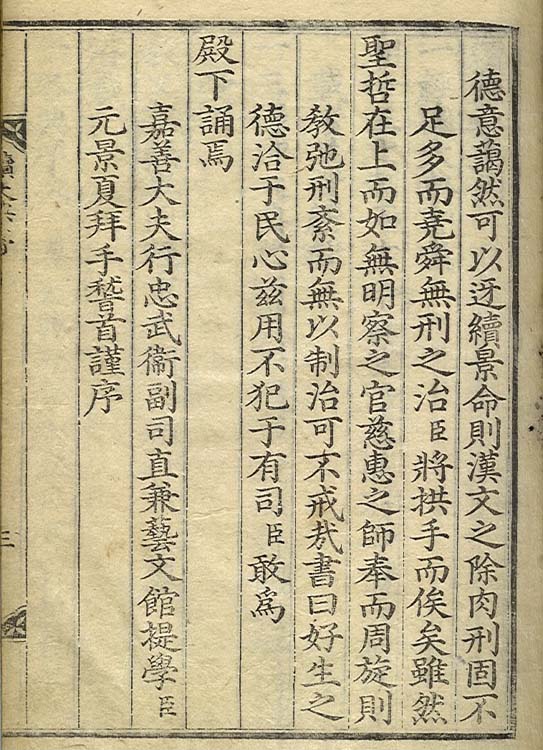 德意藹然可以迓續景命則漢文之除肉刑固不
足多而堯舜無刑之治臣將拱手而俟矣雖然
聖哲在上而如無明察之官慈惠之師奉而周旋則
敎弛刑紊而無以制治可不戒㢤書曰好生之
德洽于民心兹用不犯于有司臣敢爲
殿下誦焉
嘉善大夫行忠武衞副司直兼藝文館提學臣
元景夏拜手䭫首謹序
三